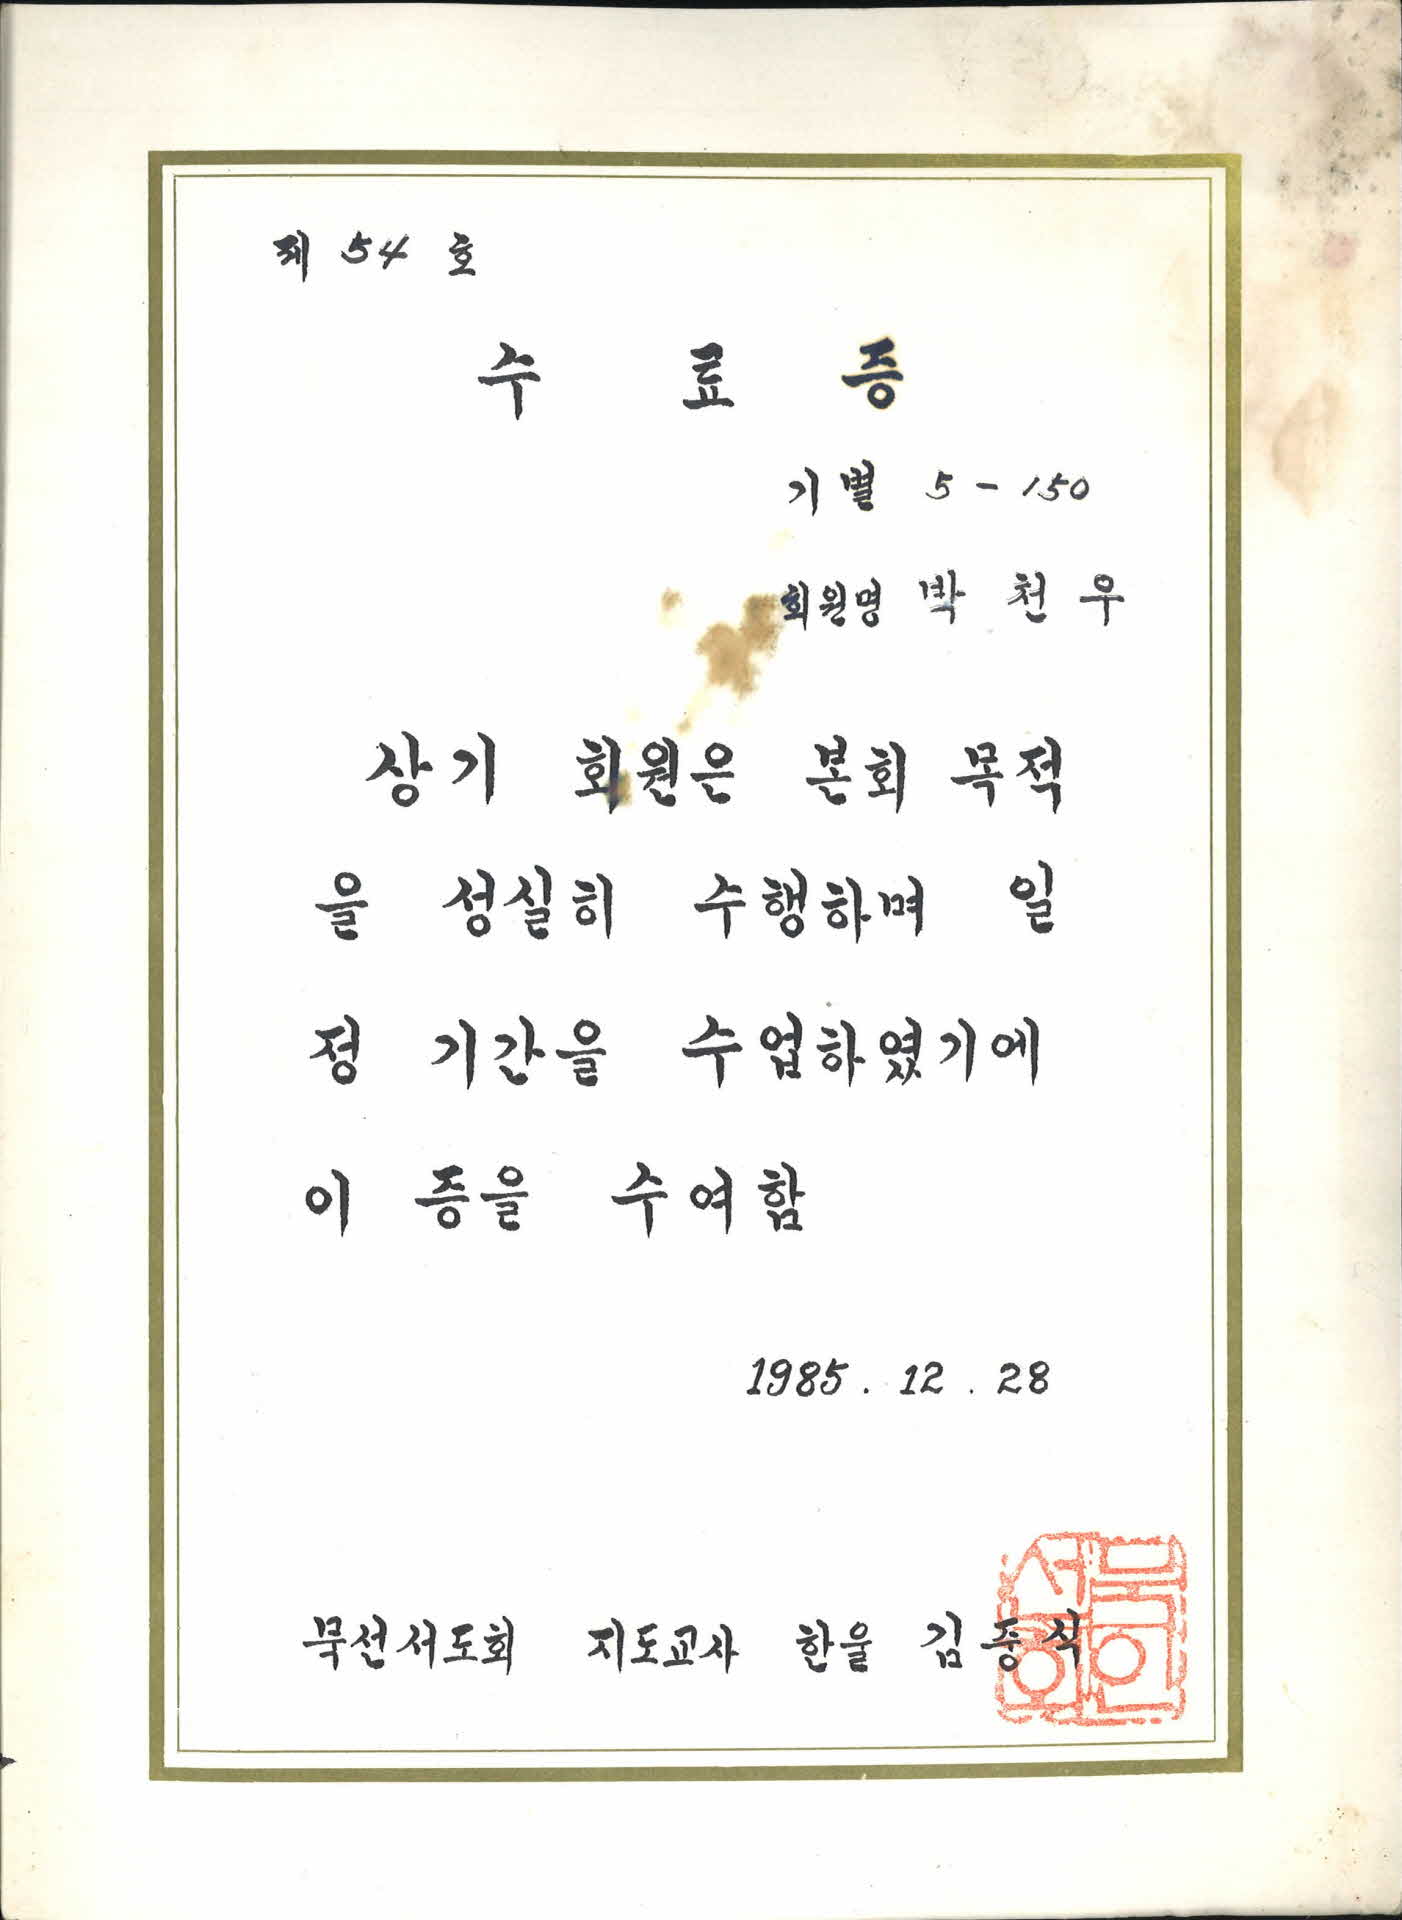 제 54 호
수 료 증
기별 5-150
회원명 박 천 우
상기 회원은 본회 목적
을 성실히 수행하며 일
정 기간을 수업하였기에
이 증을 수여함
1985. 12. 28
묵선서도회 지도교사 한울 김 종 식